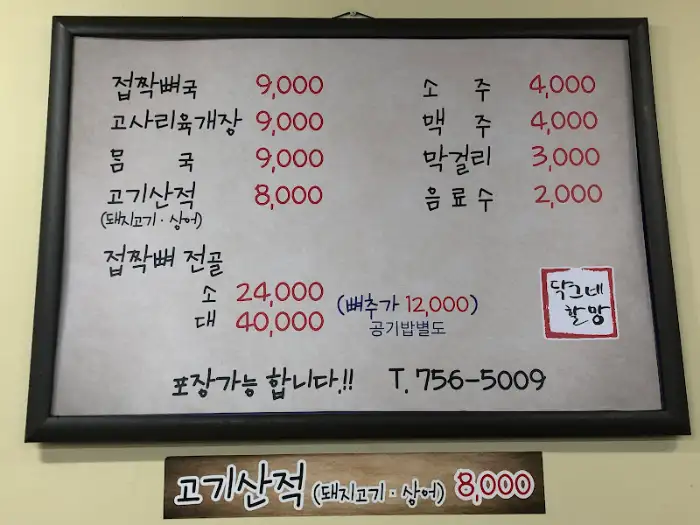 접짝뼈국 9,000
고사리육개장 9,000
몸 국 9,000
고기산적 8,000
(돼지고기·상어)
접짝뼈 전골
소 24,000
대 40,000
(뼈추가 12,000)
공기밥별도
소 주 4,000
맥 주 4,000
막걸리 3,000
음료수 2,000
닥그네
할망
포장가능 합니다.!! T. 756-5009
고기산적 (돼지고기·상어) 8,000